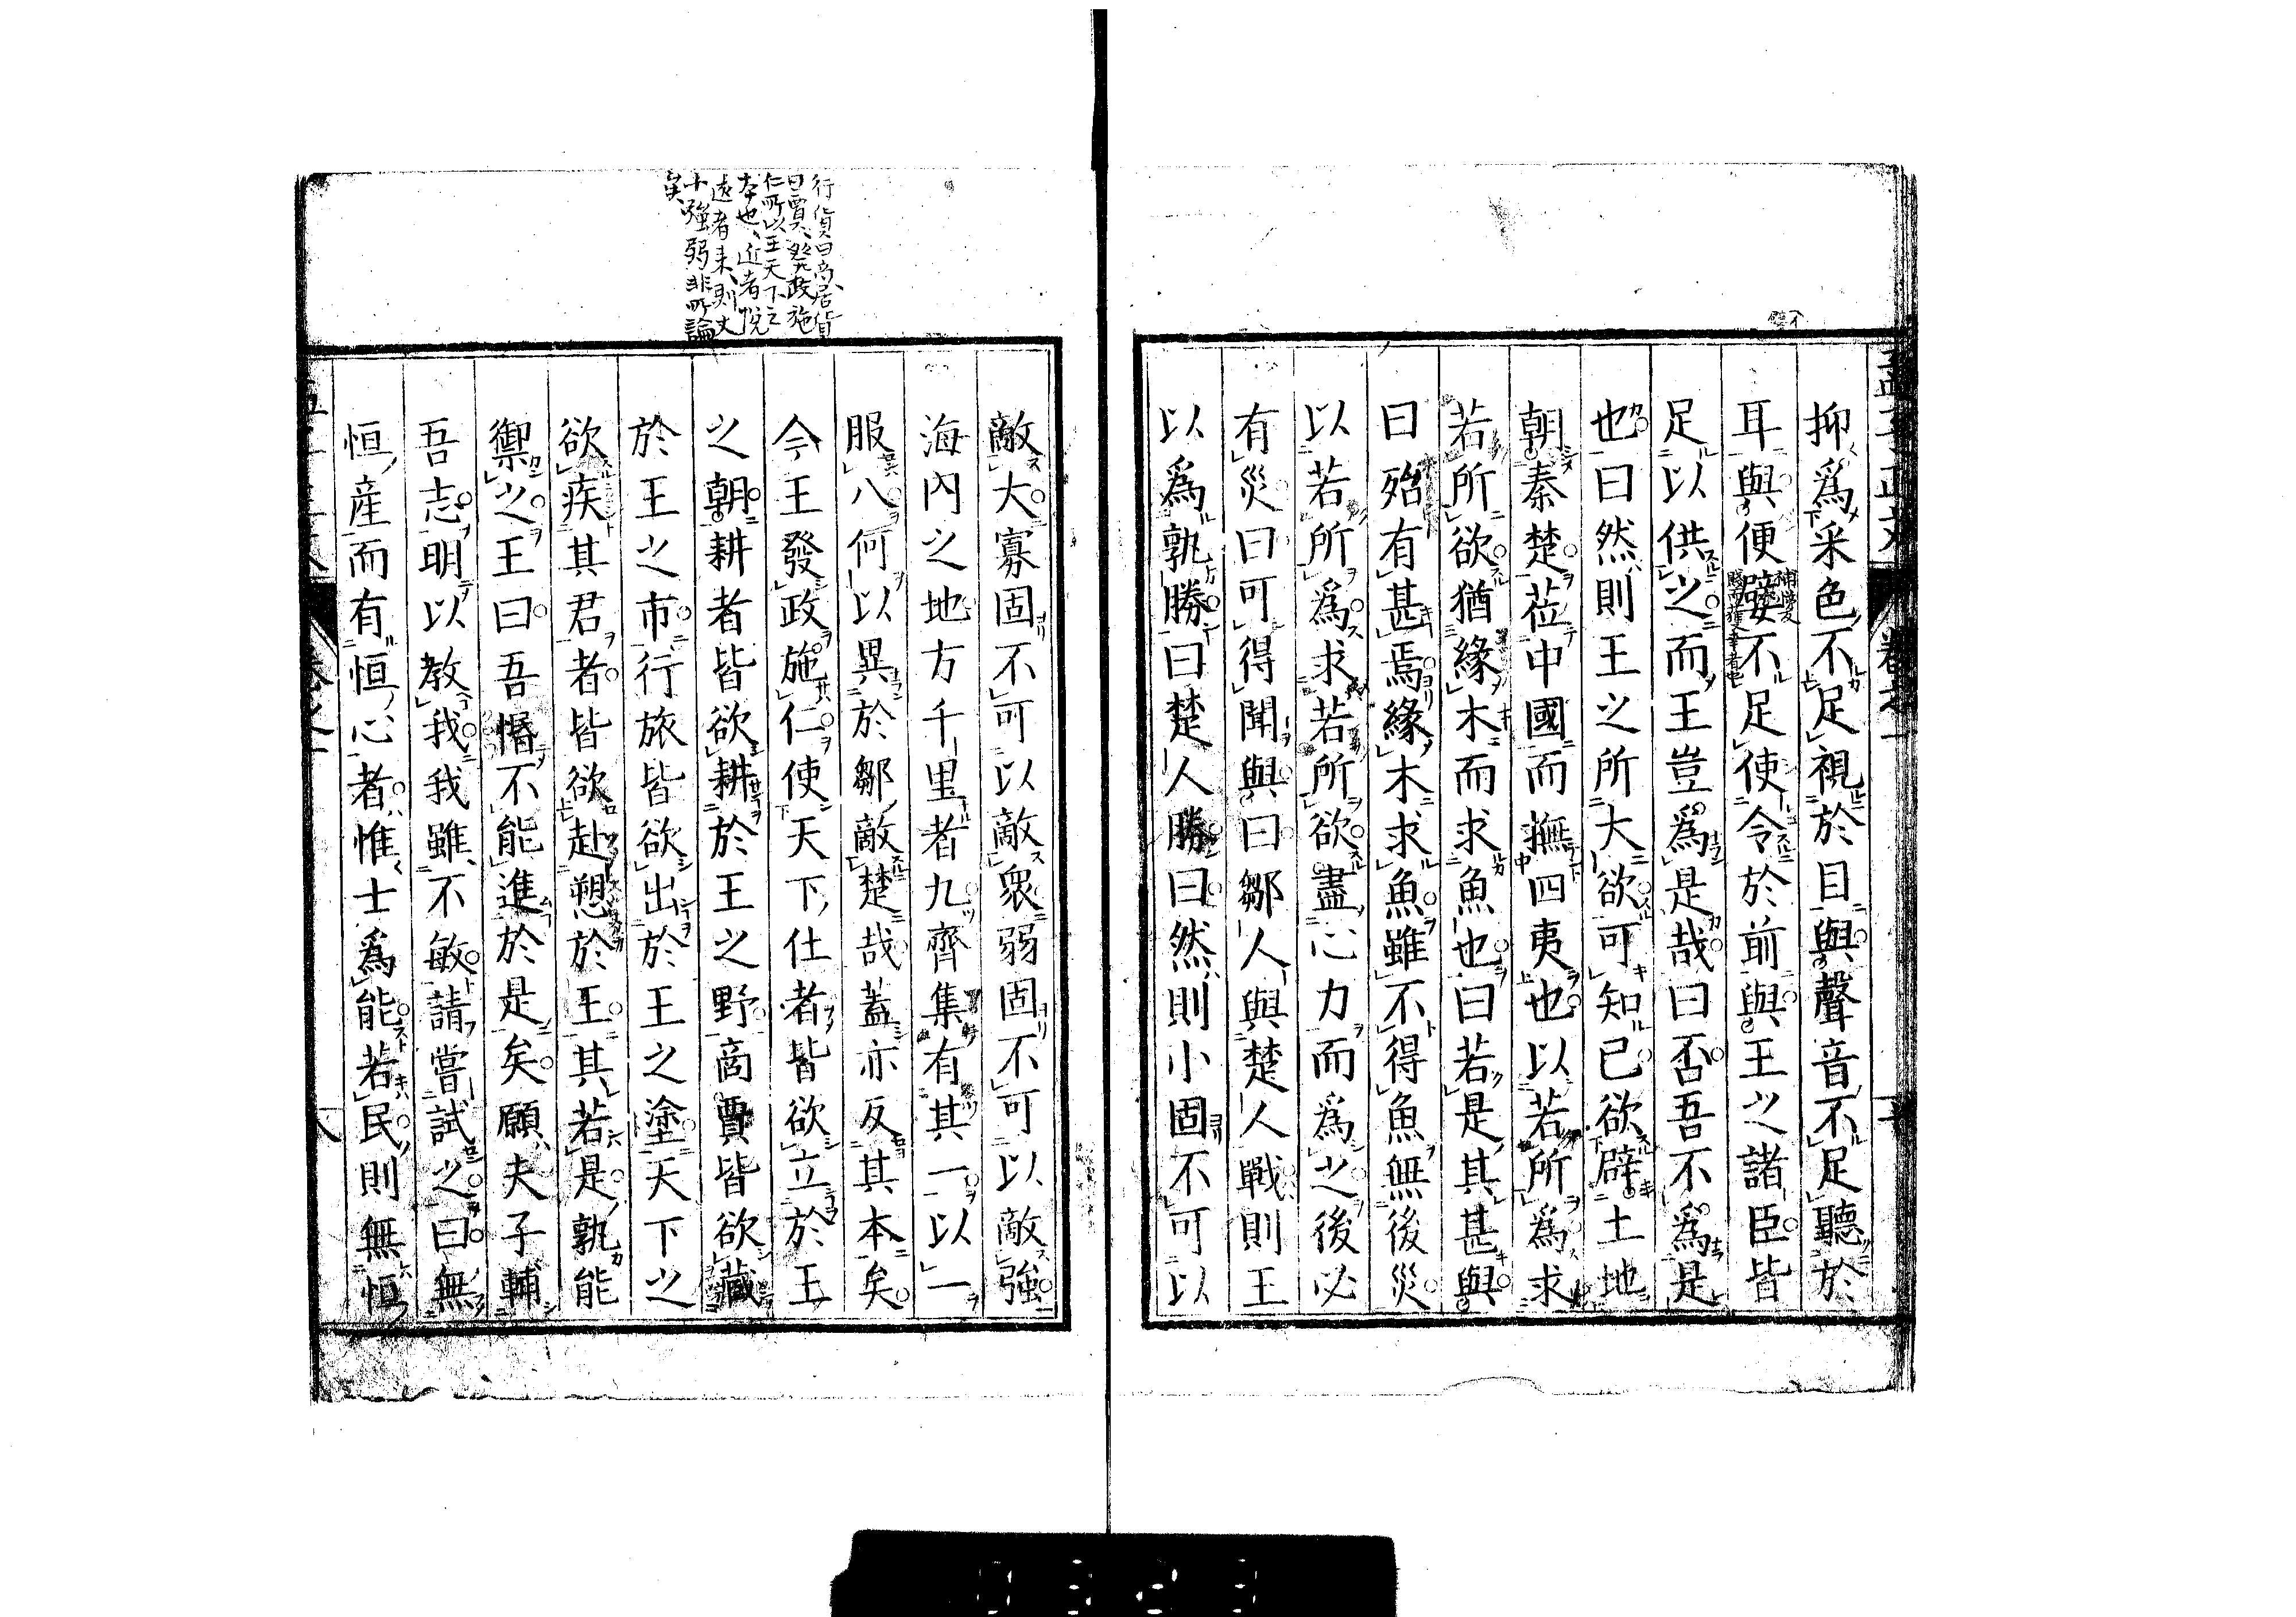 抑爲采色不足視於目與聲音不足聽於
耳與便嬖不足使令於前與王之諸臣皆
足以供之而王豈爲是哉曰否吾不爲是
也曰然則王之所大欲可知已欲辟土地
朝秦楚莅中國而撫四夷也以若所爲求
若所欲猶緣木而求魚也曰若是其甚與
曰殆有甚焉緣木求魚雖不得魚無後災
以若所爲求若所欲盡心力而爲之後必
有災曰可得聞與曰鄒人與楚人戰則王
以爲孰勝曰楚人勝曰然則小固不可以
行貨曰商居貨
曰賈、發政施
仁所以王天下之
本也、近者悦
遠者来、則大
小強弱非所論
矣
敵大寡固不可以敵衆弱固不可以敵強
海内之地方千里者九齊集有其一以一
服八何以異於鄒敵楚哉蓋亦反其本矣
今王發政施仁使天下仕者皆欲立於王
之朝耕者皆欲耕於王之野商賈皆欲藏
於王之市行旅皆欲出於王之塗天下之
欲疾其君者皆欲赴愬於王其若是孰能
禦之王曰吾惛不能進於是矣願夫子輔
吾志明以教我我雖不敏請嘗試之曰無
恒産而有恒心者惟士爲能若民則無恒